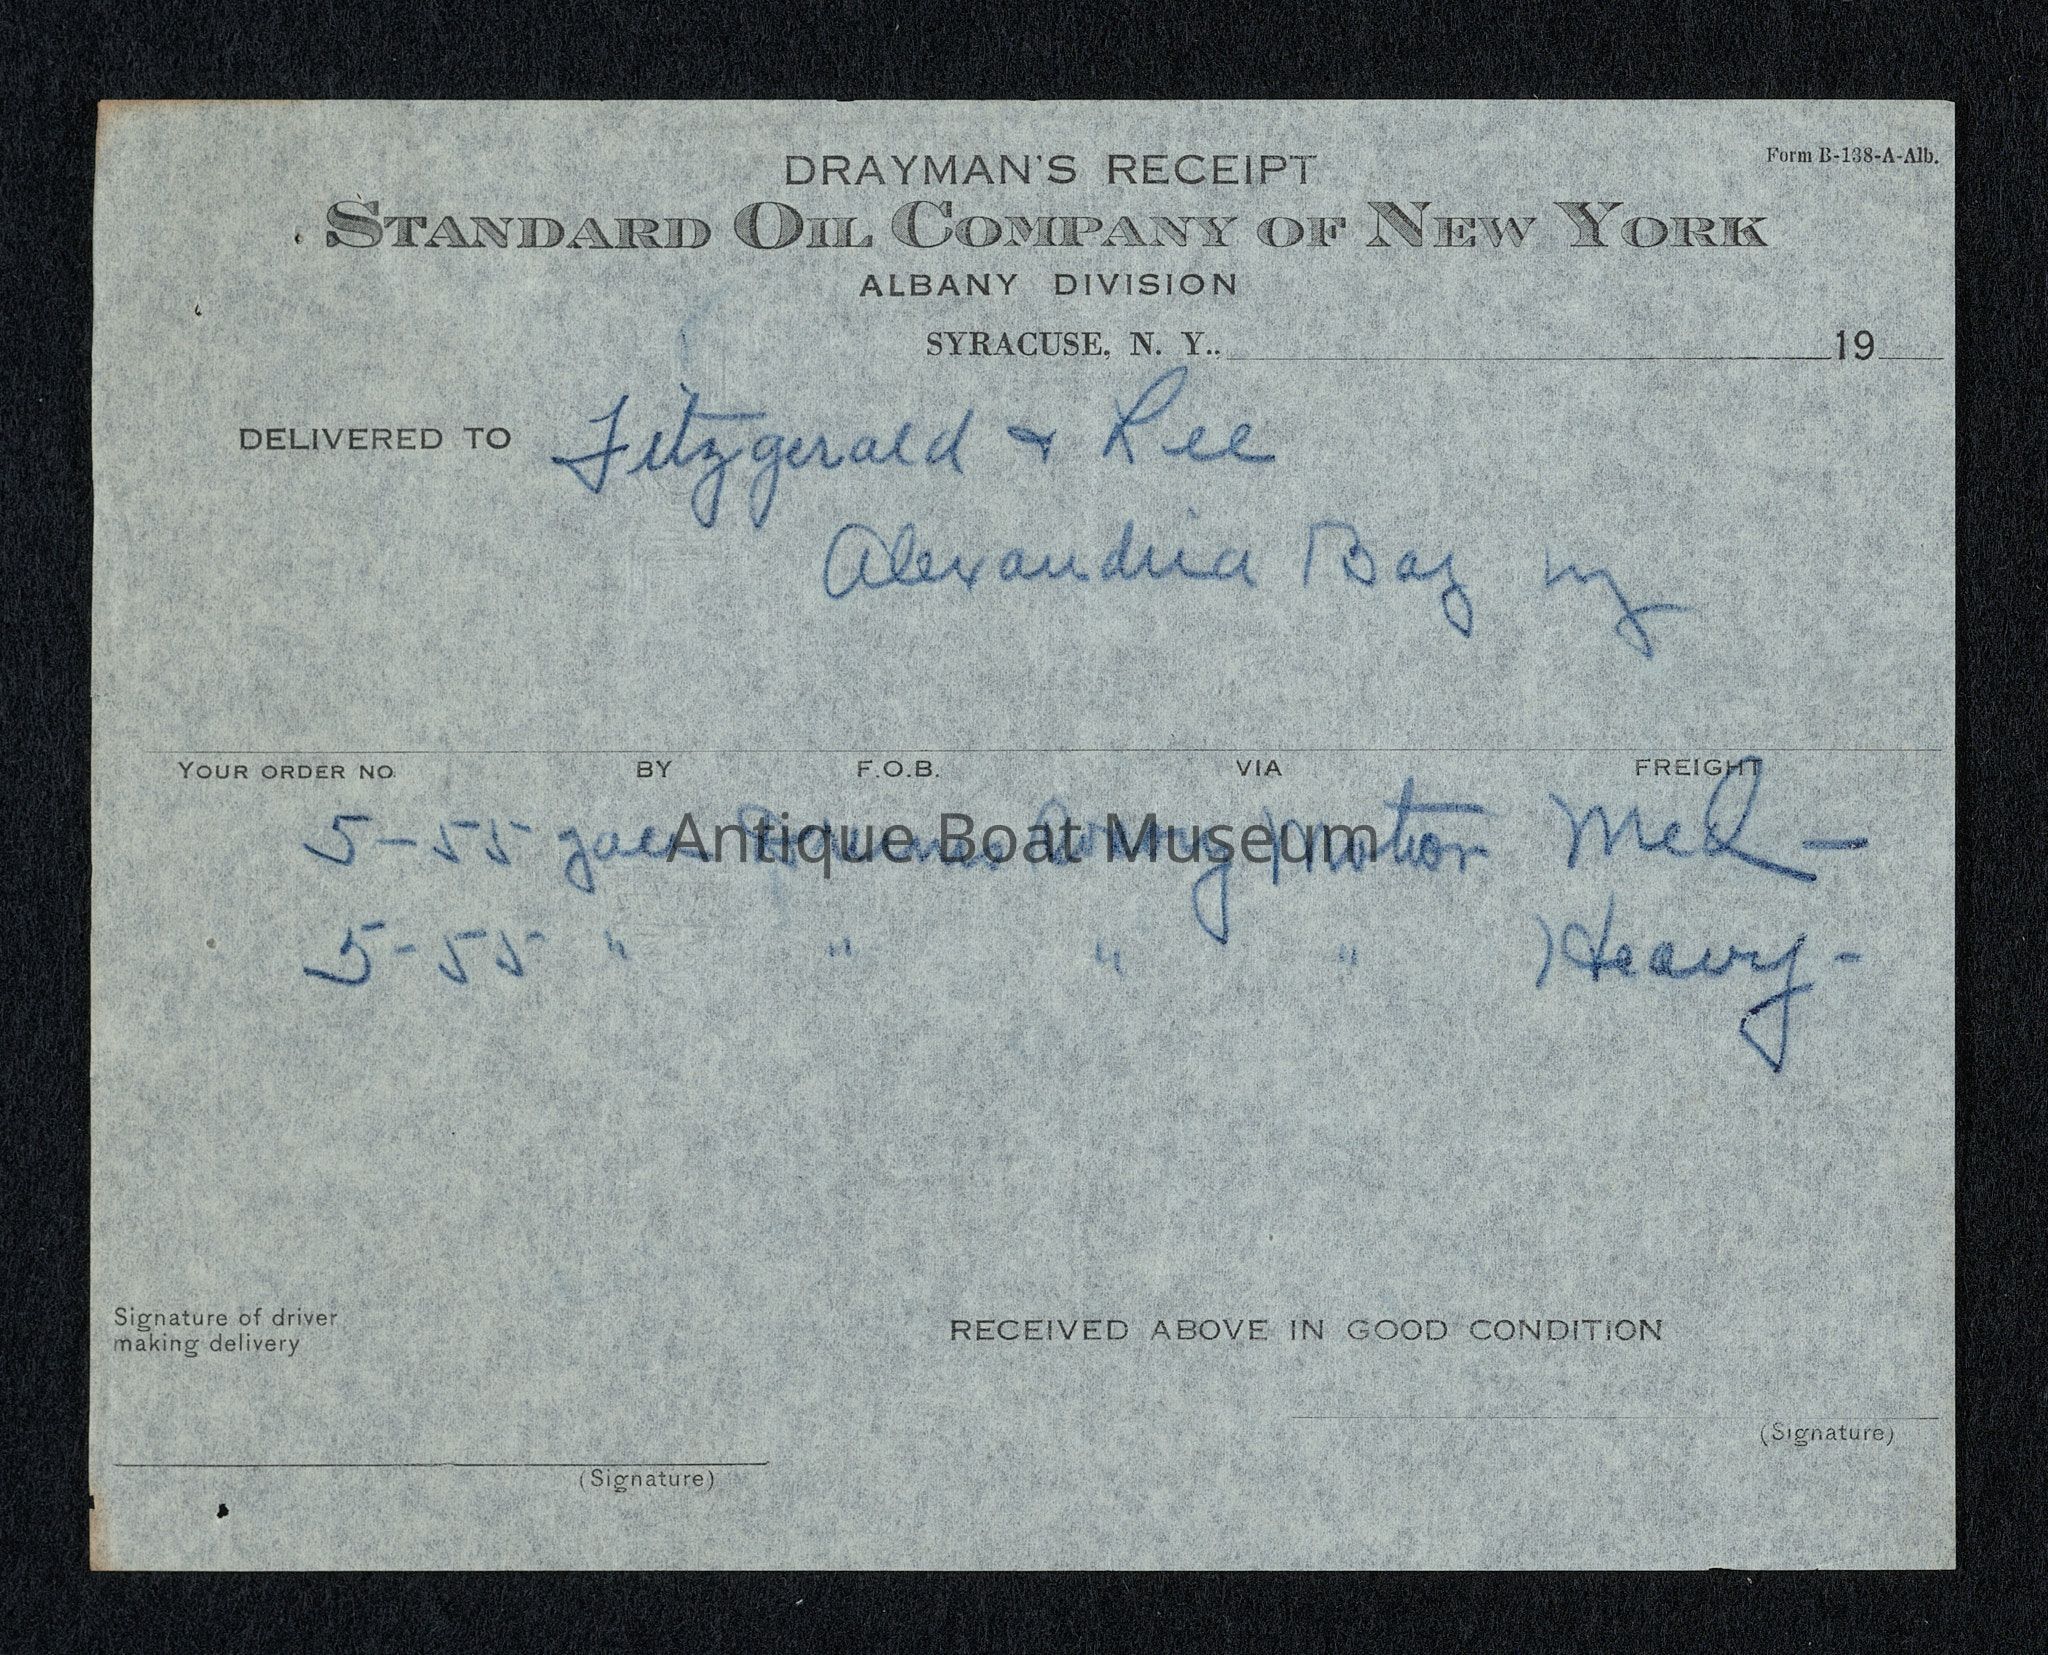 Form B-138-A-Alb.
DRAYMAN'S RECEIPT
STANDARD OIL COMPANY OF NEW YORK
ALBANY DIVISION
SYRACUSE, N. Y.. 19
DELIVERED TO Fitzgerald & Lee
Alexandria Bay ny
YOUR ORDER NO. BY F.O.B. VIA FREIGHT
5-55 Med -
Antique Boat Museum
5-55 " " " " Heavy -
Signature of driver
making delivery
RECEIVED ABOVE IN GOOD CONDITION
(Signature)
(Signature)